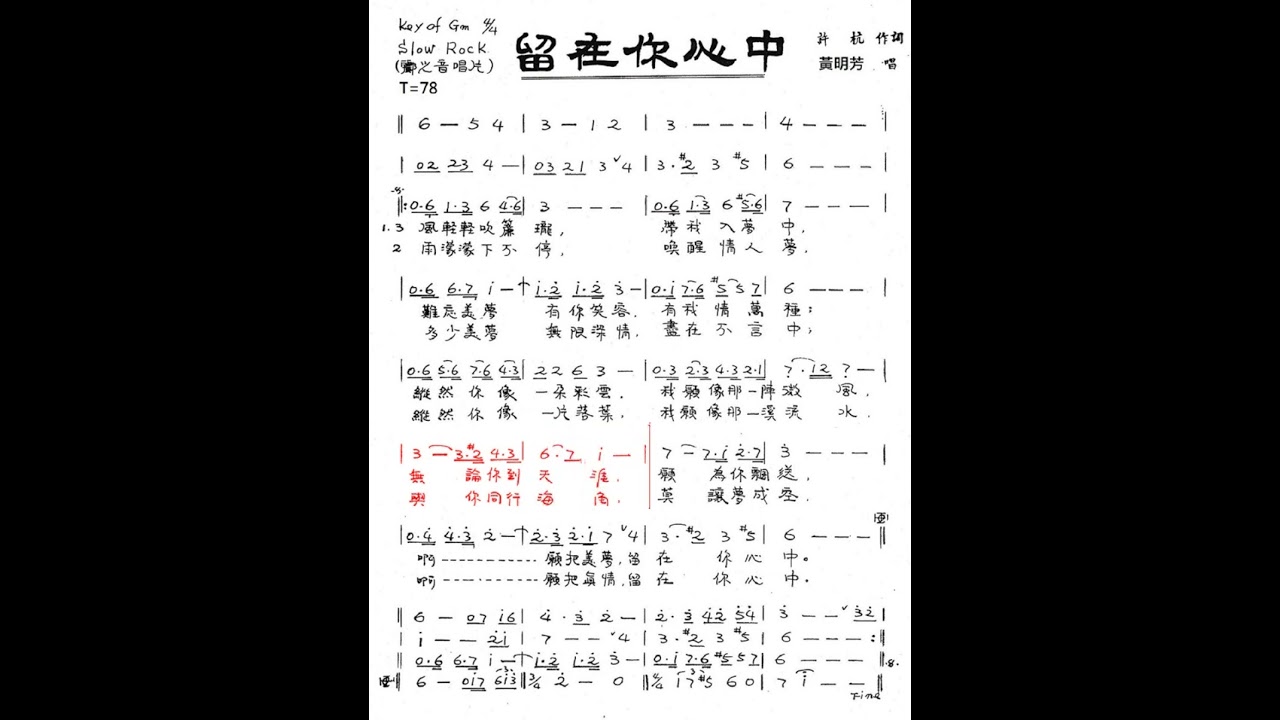 Key of Gm 4/4
Slow Rock
(鄉之音唱片)
T=78
留在你心中
許杭 作詞
黃明芳 唱
‖ 6 — 5 4 | 3 — 1 2 | 3 — — — | 4 — — — |
| 02 23 4 — | 03 21 3 ˅4 | 3·#2 3 #5 | 6 — — — |
‖: 0·6 1·3 6 4·6 | 3 — — — | 0·6 1·3 6 #5·6 | 7 — — — |
1.3 風輕輕吹簾櫳, 帶我入夢中,
2 雨濛濛下不停, 喚醒情人夢,
| 0·6 6·7 i — | i·2 i·2 3 — | 0·i 7·6 #5 5 7 | 6 — — — |
難忘美夢 有你笑容, 有我情萬種;
多少美夢 無限深情, 盡在不言中;
| 0·6 5·6 7·6 4·3 | 2 2 6 3 — | 0·3 2·3 4·3 2·1 | 7·12 7 — |
縱然你像一朵彩雲, 我願像那一陣微風,
縱然你像一片落葉, 我願像那一溪流水,
| 3 — 3·#2 4·3 | 6·7 i — | 7 — 7·i 2·7 | 3 — — — |
無論你到天涯, 願為你飄送,
與你同行海角, 莫讓夢成空,
| 0·4 4·3 2 — | 2·3 2·1 7 ˅4 | 3·#2 3 #5 | 6 — — ‖
啊------------願把美夢,留在你心中。
啊------------願把真情,留在你心中.
‖ 6 — 07 i6 | 4·3 2 — | 2·3 42 54 | 3 — — ˅32 |
| i — — 2i | 7 — — ˅4 | 3·#2 3 #5 | 6 — — — :‖
| 0·6 6·7 i — | i·2 i·2 3 — | 0·i 7·6 #5 5 7 | 6 — — — ‖
‖ 6 — 0i7 6i3 | 3/4 2 — 0 | 4/4 i7#5 6 0 | 7 i — — ‖
Fine